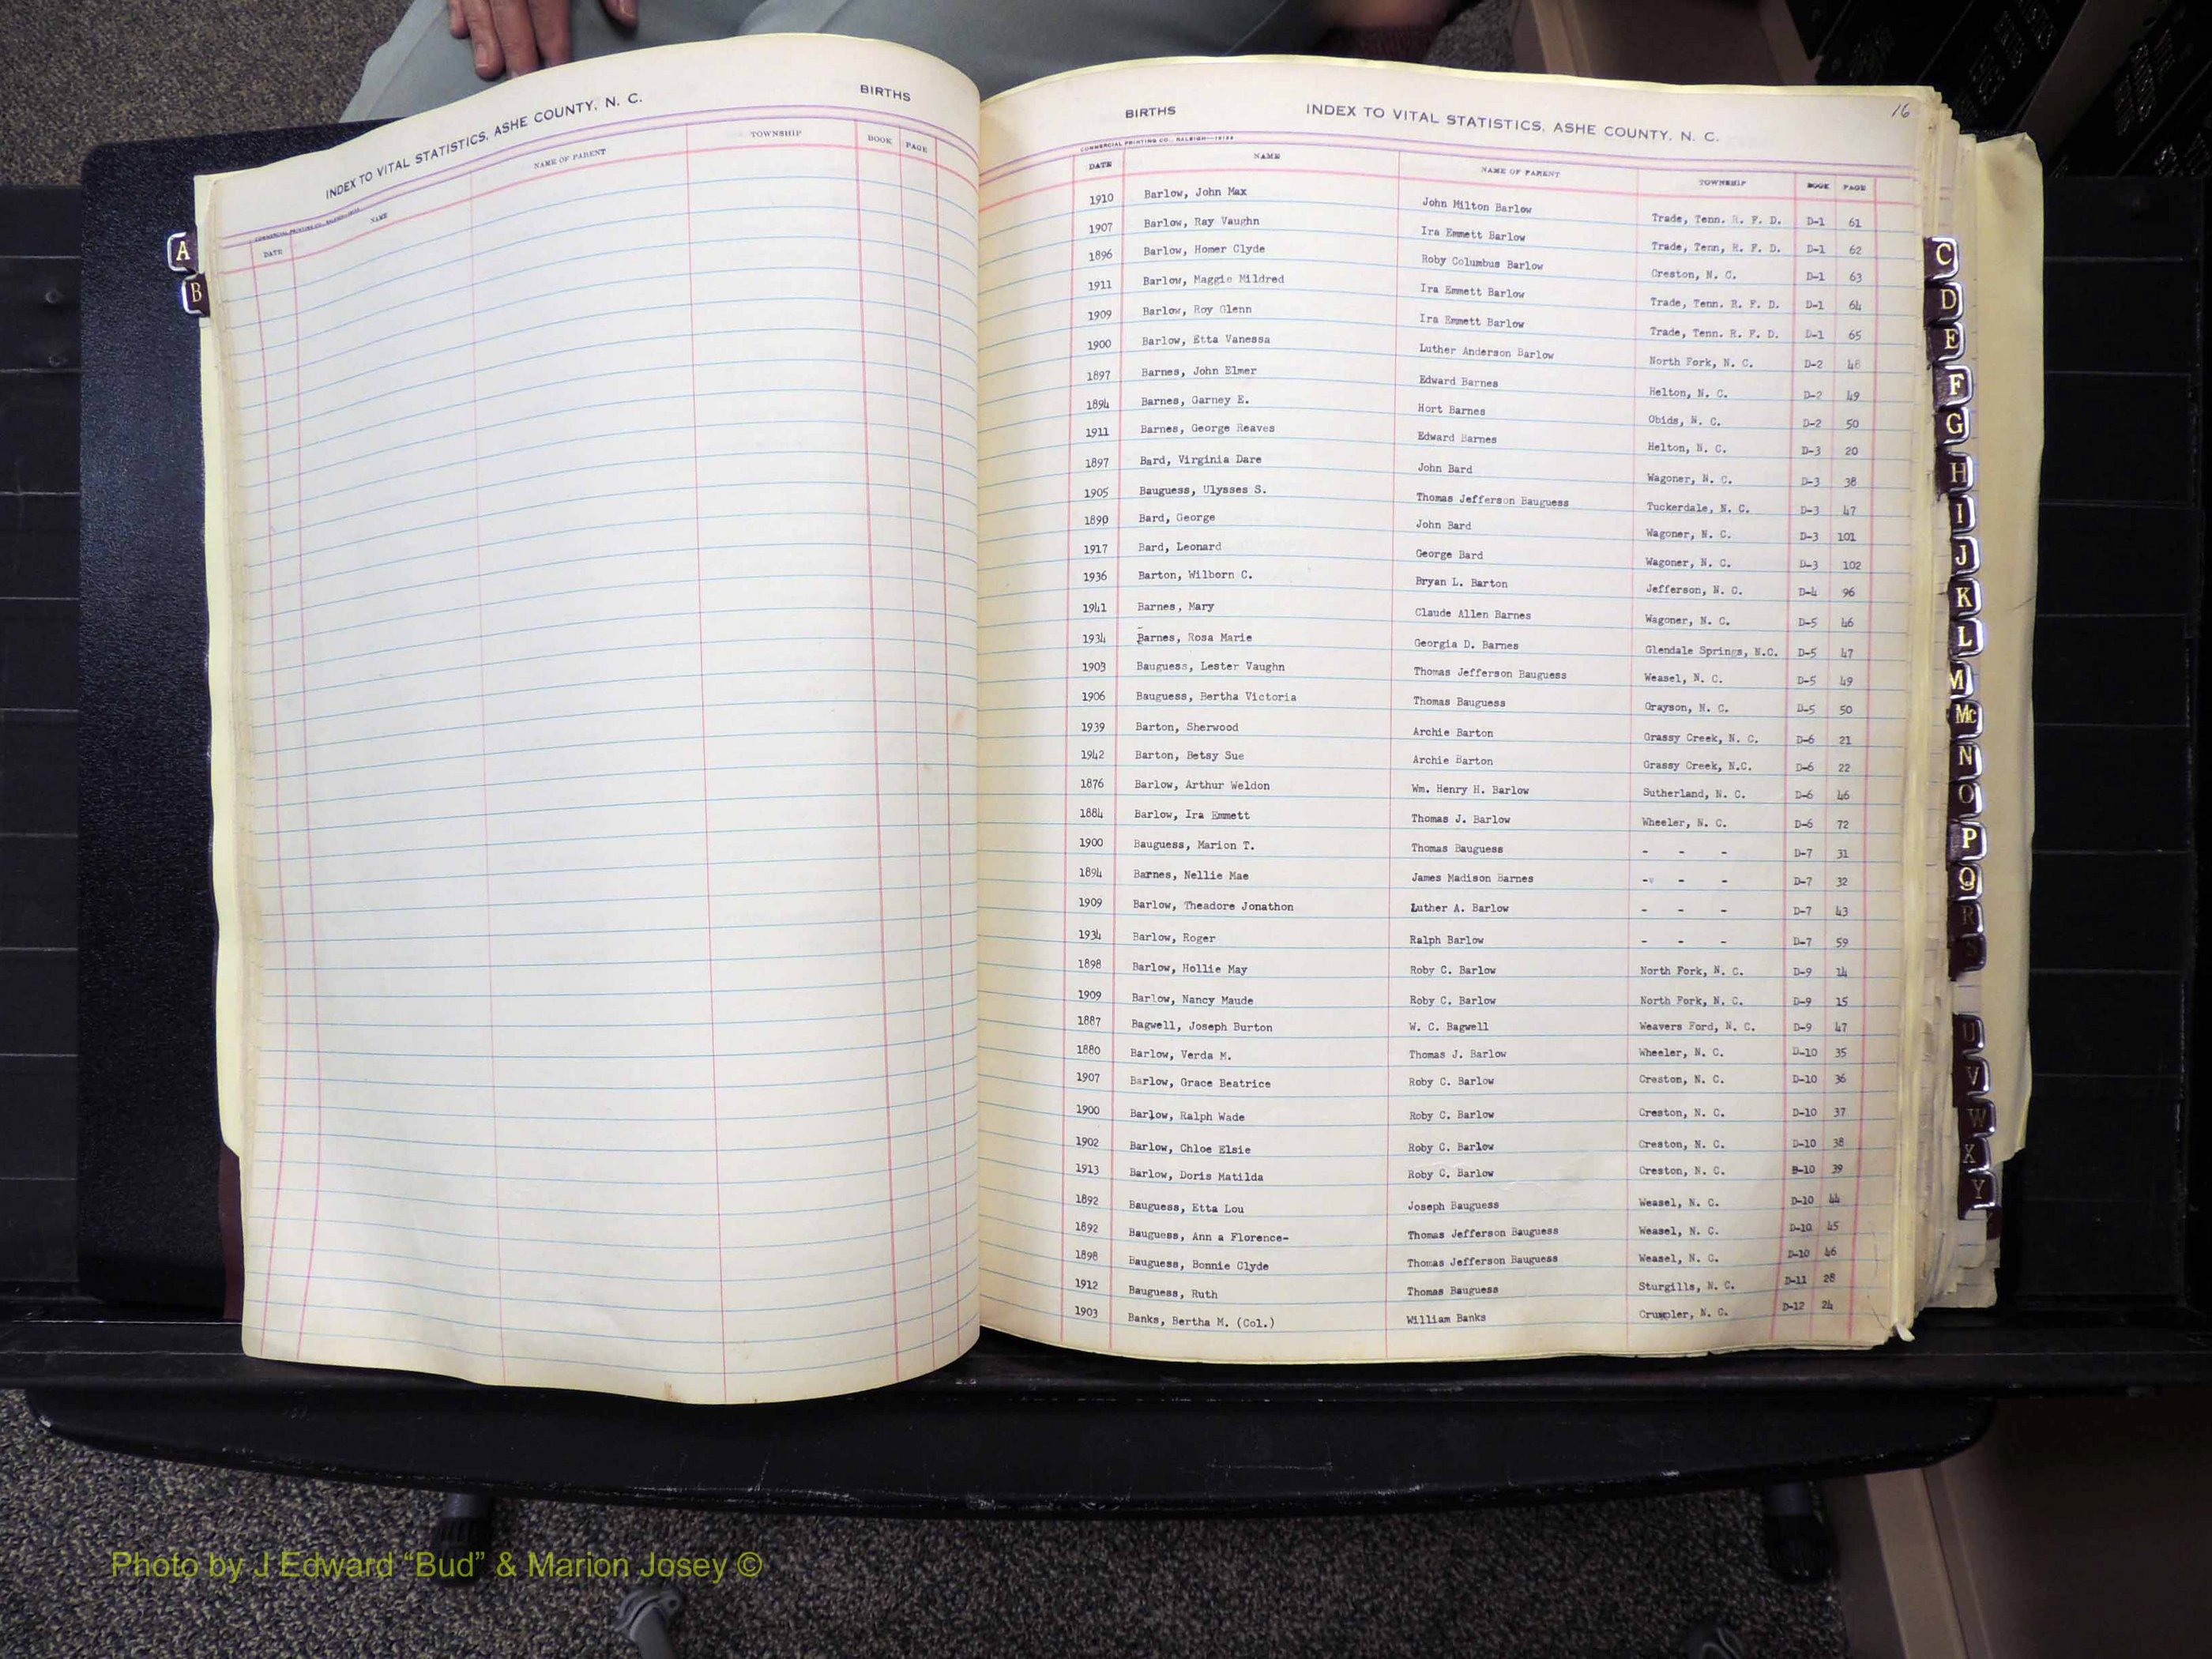 INDEX TO VITAL STATISTICS, ASHE COUNTY, N. C. BIRTHS
DATE NAME NAME OF PARENT TOWNSHIP BOOK PAGE
A
B
16
BIRTHS INDEX TO VITAL STATISTICS, ASHE COUNTY, N. C.
DATE NAME NAME OF PARENT TOWNSHIP BOOK PAGE
1910 Barlow, John Max John Milton Barlow Trade, Tenn. R. F. D. D-1 61
1907 Barlow, Ray Vaughn Ira Emmett Barlow Trade, Tenn, R. F. D. D-1 62
1896 Barlow, Homer Clyde Roby Columbus Barlow Creston, N. C. D-1 63
1911 Barlow, Maggie Mildred Ira Emmett Barlow Trade, Tenn. R. F. D. D-1 64
1909 Barlow, Roy Glenn Ira Emmett Barlow Trade, Tenn. R. F. D. D-1 65
1900 Barlow, Etta Vanessa Luther Anderson Barlow North Fork, N. C. D-2
1897 Barnes, John Elmer Edward Barnes Helton, N. C. D-2 49
1894 Barnes, Garney E. Hort Barnes Obids, N. C. D-2 50
1911 Barnes, George Reaves Edward Barnes Helton, N. C. D-3 20
1897 Bard, Virginia Dare John Bard Wagoner, N. C. D-3 38
1905 Bauguess, Ulysses S. Thomas Jefferson Bauguess Tuckerdale, N. C. D-3 47
1890 Bard, George John Bard Wagoner, N. C. D-3 101
1917 Bard, Leonard George Bard Wagoner, N. C. D-3 102
1936 Barton, Wilborn C. Bryan L. Barton Jefferson, N. C. D-4 96
1941 Barnes, Mary Claude Allen Barnes Wagoner, N. C. D-5 46
1934 Barnes, Rosa Marie Georgia D. Barnes Glendale Springs, N.C. D-5 47
1903 Bauguess, Lester Vaughn Thomas Jefferson Bauguess Weasel, N. C. D-5 49
1906 Bauguess, Bertha Victoria Thomas Bauguess Grayson, N. C. D-5 50
1939 Barton, Sherwood Archie Barton Grassy Creek, N. C. D-6 21
1942 Barton, Betsy Sue Archie Barton Grassy Creek, N.C. D-6 22
1876 Barlow, Arthur Weldon Wm. Henry H. Barlow Sutherland, N. C. D-6 46
1884 Barlow, Ira Emmett Thomas J. Barlow Wheeler, N. C. D-6 72
1900 Bauguess, Marion T. Thomas Bauguess - - - D-7 31
1894 Barnes, Nellie Mae James Madison Barnes - - - D-7 32
1909 Barlow, Theadore Jonathon Luther A. Barlow - - - D-7 43
1934 Barlow, Roger Ralph Barlow - - - D-7 59
1898 Barlow, Hollie May Roby C. Barlow North Fork, N. C. D-9 14
1909 Barlow, Nancy Maude Roby C. Barlow North Fork, N. C. D-9 15
1887 Bagwell, Joseph Burton W. C. Bagwell Weavers Ford, N. C. D-9 47
1880 Barlow, Verda M. Thomas J. Barlow Wheeler, N. C. D-10 35
1907 Barlow, Grace Beatrice Roby C. Barlow Creston, N. C. D-10 36
1900 Barlow, Ralph Wade Roby C. Barlow Creston, N. C. D-10 37
1902 Barlow, Chloe Elsie Roby C. Barlow Creston, N. C. D-10 38
1913 Barlow, Doris Matilda Roby C. Barlow Creston, N. C. D-10 39
1892 Bauguess, Etta Lou Joseph Bauguess Weasel, N. C. D-10 44
1892 Bauguess, Ann a Florence- Thomas Jefferson Bauguess Weasel, N. C. D-10 45
1898 Bauguess, Bonnie Clyde Thomas Jefferson Bauguess Weasel, N. C. D-10 46
1912 Bauguess, Ruth Thomas Bauguess Sturgills, N. C. D-11 28
1903 Banks, Bertha M. (Col.) William Banks Crumpler, N. C. D-12 24
C
D
E
F
G
H
I
J
K
L
M
Mc
N
O
P
Q
R
U
V
W
X
Y
Photo by J Edward “Bud” & Marion Josey ©